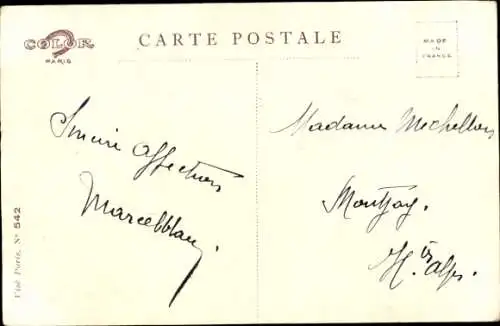 COLOR
PARIS
CARTE POSTALE
MADE
IN
FRANCE
Sincère Affection
Madame
Montjay.
Htes Alpes.
Visé Paris. Nº 542